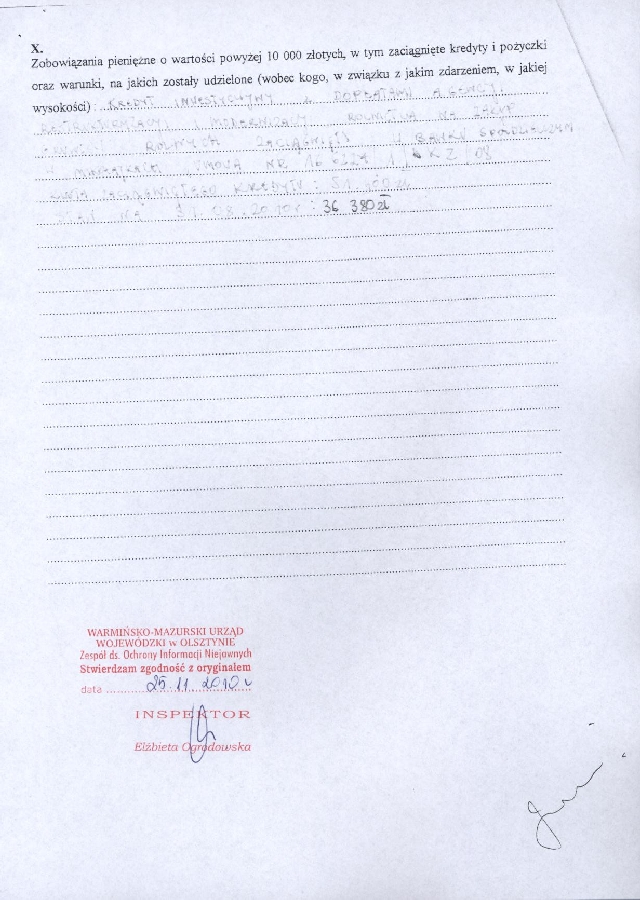 X.
Zobowiązania pieniężne o wartości powyżej 10 000 złotych, w tym zaciągnięte kredyty i pożyczki
oraz warunki, na jakich zostały udzielone (wobec kogo, w związku z jakim zdarzeniem, w jakiej
wysokości) KREDYT INWESTYCYJNY Z DOPŁATAMI AGENCJI
RESTRUKTURYZACJI I MODERNIZACJI ROLNICTWA NA ZAKUP
ROLNYCH ZACIĄGNIĘTY W BANKU SPÓŁDZIELCZYM
W UMOWA NR
KWOTA ZACIĄGNIĘTEGO KREDYTU:
NA 36 380 zł
WARMIŃSKO-MAZURSKI URZĄD
WOJEWÓDZKI w OLSZTYNIE
Zespół ds. Ochrony Informacji Niejawnych
Stwierdzam zgodność z oryginałem
data 25.11.2010r
INSPEKTOR
Elżbieta Ogrodowska